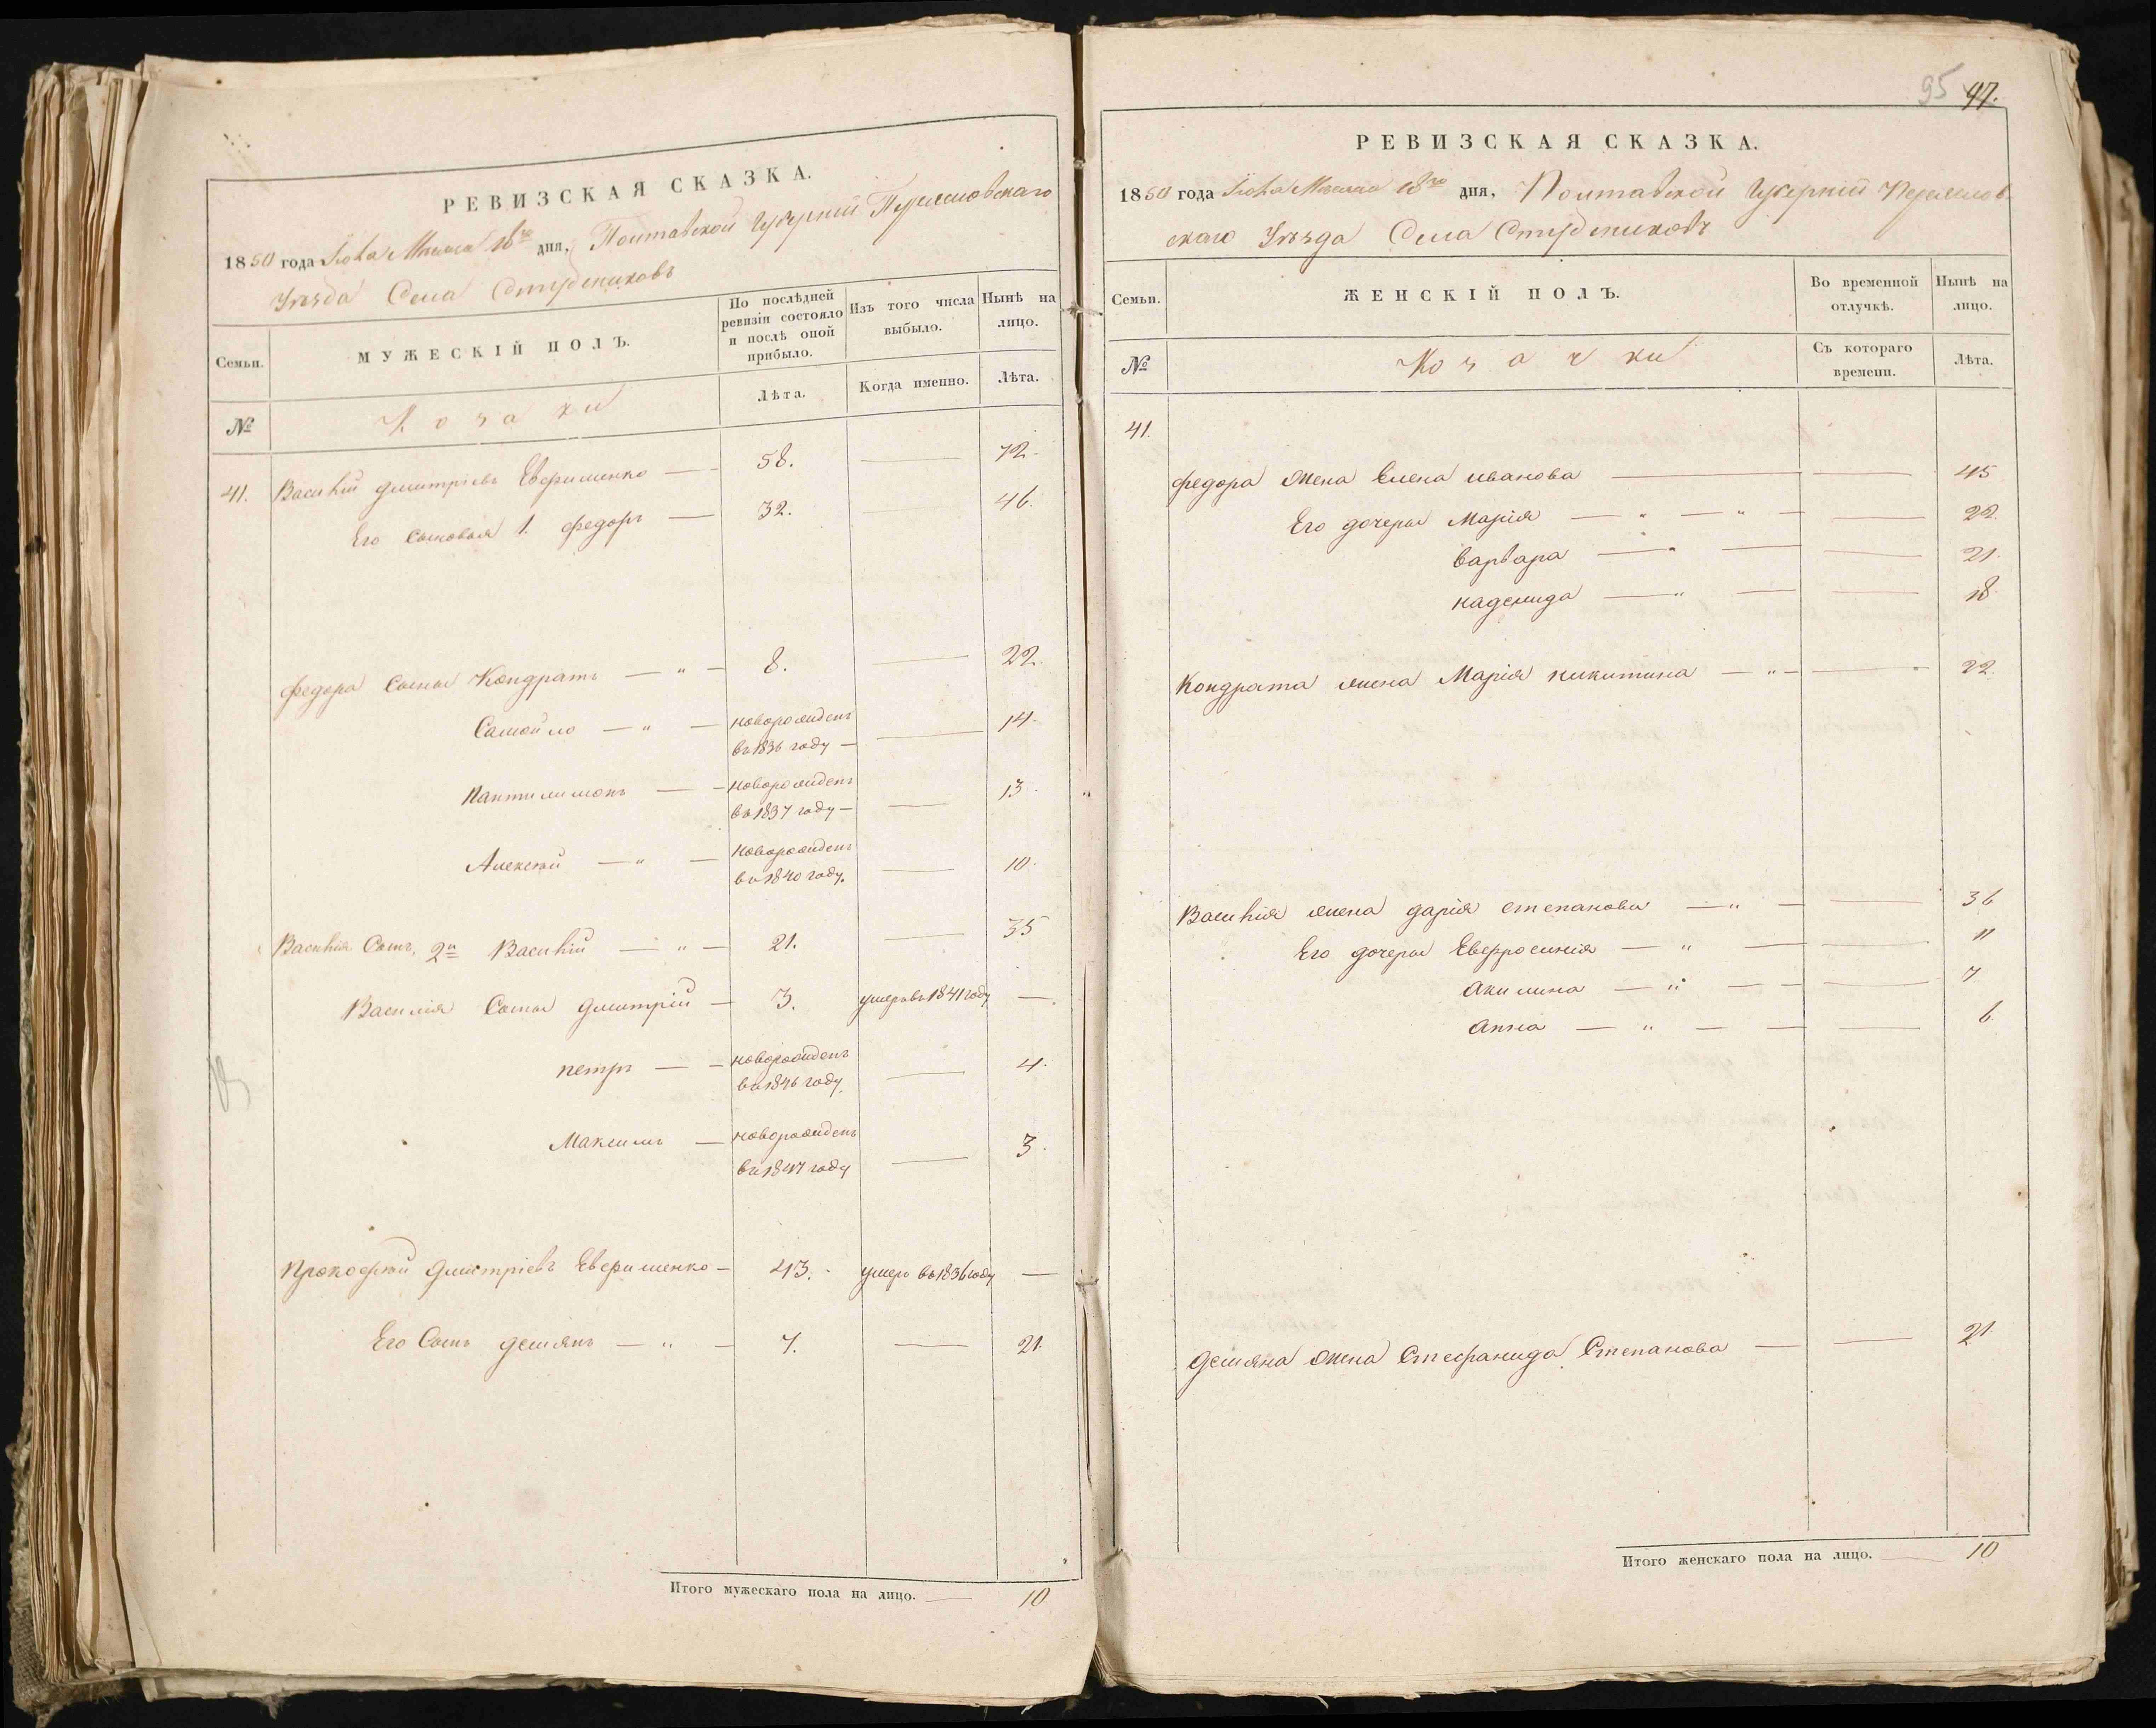 РЕВИЗСКАЯ СКАЗКА.
1850 года Іюля Месяца 18го дня, Полтавской Губерніи Переяславского
Уѣзда Села Студениковъ
Семьи.
МУЖЕСКІЙ ПОЛЪ.
По послѣдней ревизіи состояло и послѣ оной прибыло.
Изъ того числа выбыло.
Нынѣ на лицо.
№
Козаки
Лѣта.
Когда именно.
Лѣта.
41. Василій дмитріевъ Евфименко — 58. — 72.
Его сыновья 1. федоръ — 32. — 46.
федора сыны Кондратъ — „ — 8. — 22.
Самойло — „ — новорожденъ въ 1836 году — 14.
пантилимонъ — новорожденъ въ 1837 году — 13.
Алексѣй — „ — новорожденъ въ 1840 году. — 10.
Василія Сынъ, 2й Василій — „ — 21. — 35
Василія Сыны дмитрій — 3. умеръ въ 1841 году —
петръ — новорожденъ въ 1846 году. — 4.
Максимъ — новорожденъ въ 1847 году — 3.
прокофѣй дмитріевъ Евфименко — 43. умеръ въ 1836 году —
Его Сынъ демянъ — „ — 7. — 21.
Итого мужескаго пола на лицо. — 10
95 97.
РЕВИЗСКАЯ СКАЗКА.
1850 года Іюля Месяца 18го дня, Полтавской Губерніи Переяслов
скаго Уѣзда Села Студениковъ
Семьи.
ЖЕНСКІЙ ПОЛЪ.
Во временной отлучкѣ.
Нынѣ на лицо.
№
Козачки
Съ котораго времени.
Лѣта.
41.
федора жена Елена иванова — 45
Его дочеры Марія — „ — „ — 22.
варвара — „ — 21.
надежида — „ — 18
Кондрата жена Марія никитина — „ — 22.
Василія жена дарія степанова — „ — 36
Его дочеры Евфросинія — „ — 11
акилина — „ — 7
анна — „ — 6.
демяна жена Стефанида Степанова — 21.
Итого женскаго пола на лицо. — 10